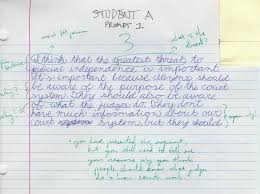 STUDENT A
PROMPT 1
avoid 1st person
what is the threat?
3
I think that the greatest threat to
judicial independence is important
It's important because citizens should
be aware of the purpose of the court
system. They should also be aware
of what the judges do. They don't
have much information about our
court system, but they should
why?
why?
• you had presented the argument,
but you still need to tell me
your reasons why you think
people should know what judges
do + how courts work.